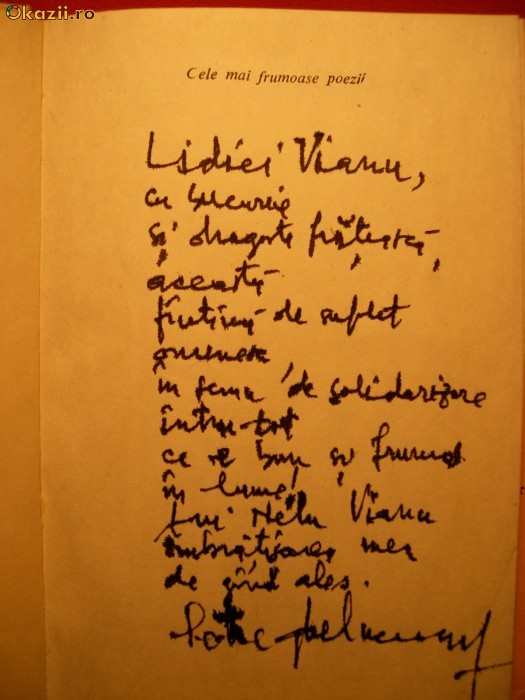 Okazii.ro
Cele mai frumoase poezii
Lidiei Vianu,
cu bucurie
și dragoste frățească,
această
fîntînă de suflet
omenesc,
în semn de solidarizare
întru tot
ce e bun și frumos
în lume!
Lui Nelu Vianu
îmbrățișarea mea
de gînd ales.